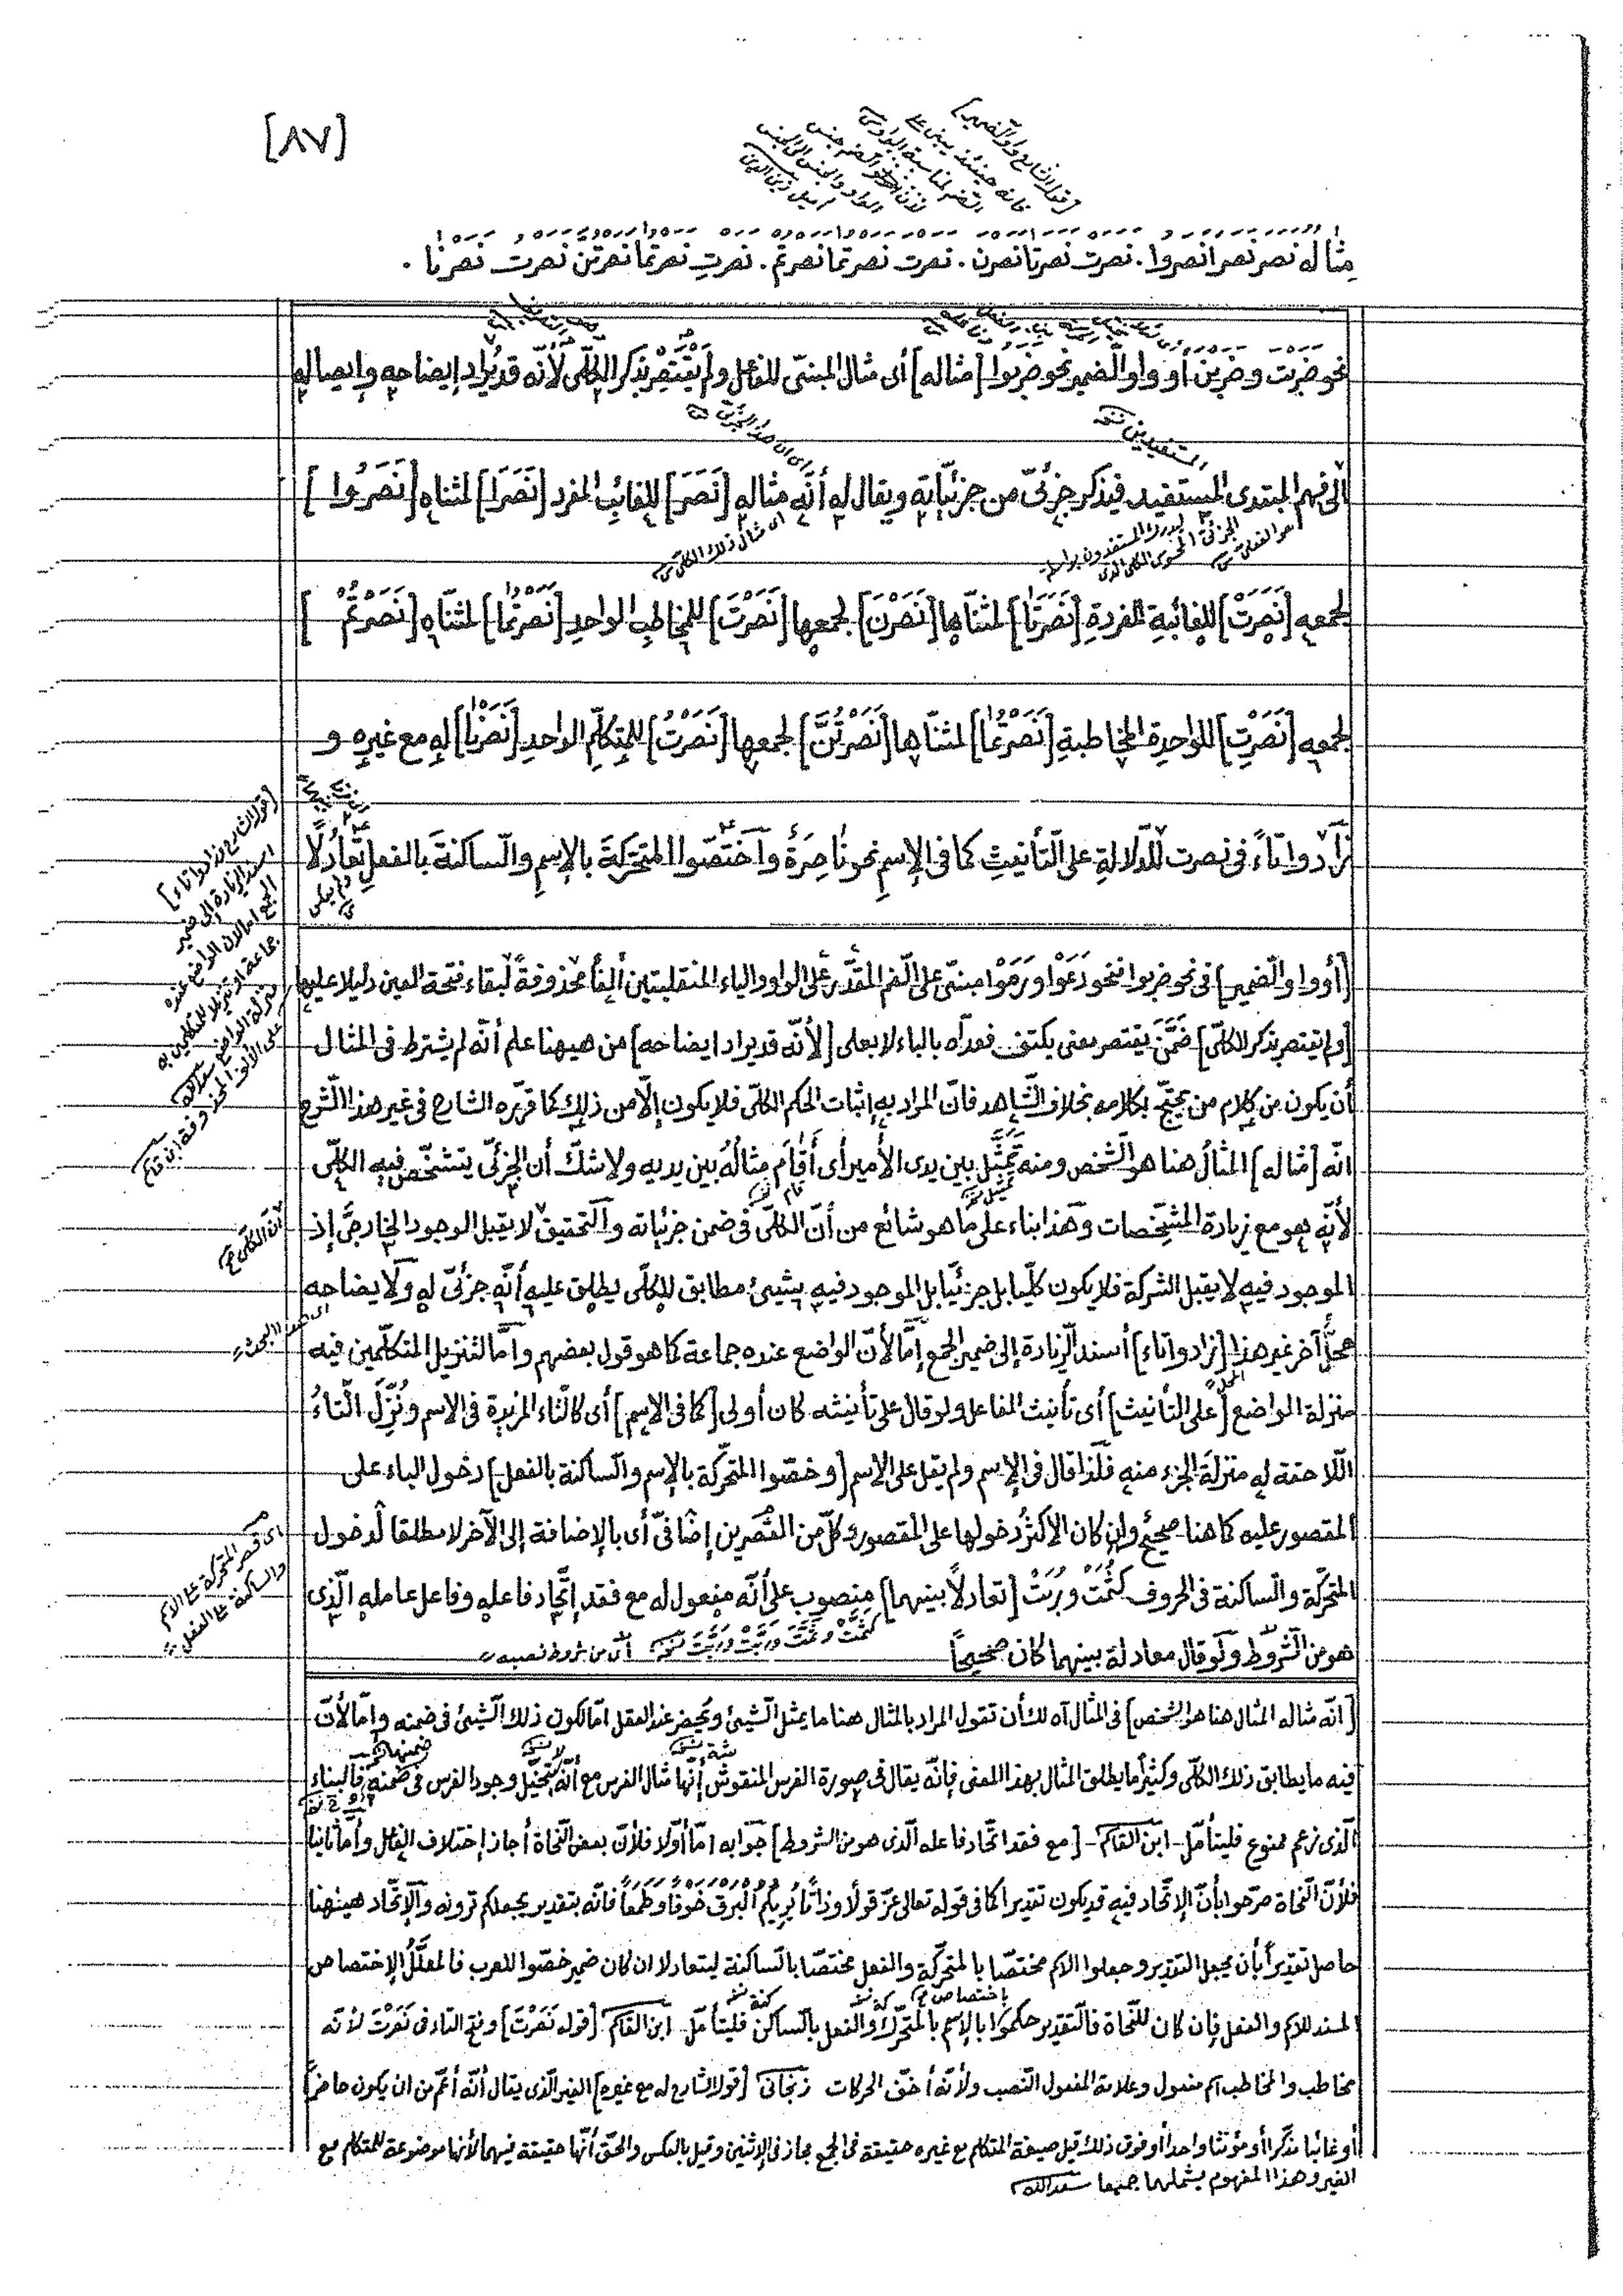 [٨٧]
مثاله نصر نصرا نصروا. نصرت نصرتا نصرن. نصرت نصرتما نصرتم. نصرتِ نصرتما نصرتنّ نصرتُ نصرنا.
نحو ضربت وضربن أو واو الضمير نحو ضربوا [مثاله] أى مثال المبنى للفاعل ولم يقتصر بذكر الكلّى لأنّه قد يراد إيضاحه وإيصاله
الى فهم المبتدى المستفيد فيذكر جزئىّ من جزئيّاته ويقال له أنّه مثاله [نَصَرَ] للغائب المفرد [نَصَرَا] لمثناه [نَصَرُوا]
لجمعه [نَصَرَتْ] للغائبة المفردة [نَصَرَتَا] لمثنّاها [نَصَرْنَ] لجمعها [نَصَرْتَ] للمخاطب الواحد [نَصَرْتُمَا] لمثنّاه [نَصَرْتُمْ]
لجمعه [نَصَرْتِ] للواحدة المخاطبة [نَصَرْتُمَا] لمثنّاها [نَصَرْتُنَّ] لجمعها [نَصَرْتُ] للمتكلّم الواحد [نَصَرْنَا] له مع غيره و
زادوا تاءً فى نصرت للدّلالة على التّأنيث كما فى الإسم نحو ناصرة واختصّوا المتحرّكة بالإسم والسّاكنة بالفعل تعادلًا
[أو واو الضمير] فى نحو ضربوا فنحو دَعَوْا ورَمَوْا مبنىّ على الضّم المقدّر على الواو والياء المنقلبتين ألِفًا محذوفةً لبقاء فتحة العين دليلا عليها
[ولم يقتصر بذكر الكلّى] ضمّن يقتصر معنى يكتفى فعدّاه بالباء لا بعلى [لأنّه قد يراد ايضاحه] من هيهنا علم أنّه لم يشترط فى المثال
أن يكون من كلام من يحتجّ بكلامه بخلاف الشّاهد فانّ المراد به إثبات الحكم الكلّى فلا يكون إلّا من ذلك كما قرّره الشارح فى غير هذا الشّرح
انّه [مثاله] المثال هنا هو الشّخص ومنه تَمَثَّل بين يدى الأمير أى أقام مثالُهُ بين يديه ولا شكّ أن الجزئى يتشخّص فيه الكلّى
لأنّه هو مع زيادة المشخّصات وهذا بناء على ما هو شائع من أنّ الكلّى فى ضمن جزئياته والتّحقيق لا يقبل الوجود الخارجىّ إذ
الموجود فيه لا يقبل الشركة فلا يكون كلّيّا بل جزئيّا بل الموجود فيه شيئ مطابق للكلّى يطلق عليه أنّه جزئىّ له ولايضاحه
محلّ آخر غير هذا [زادوا تاء] أسند الزّيادة إلى ضمير الجمع إمّا لأنّ الواضع عنده جماعة كما هو قول بعضهم وامّا لتنزيل المتكلّمين فيه
منزلة الواضع [على التأنيث] أى تأنيث الفاعل ولو قال على تأنيثه كان أولى [كما فى الإسم] أى كالتاء المزيدة فى الاسم ونُزِّلَ التّاءُ
اللّاحقة له منزلة الجزء منه فلذا قال فى الإسم ولم يقل على الاسم [وخصّوا المتحرّكة بالإسم والسّاكنة بالفعل] دخول الباء على
المقصور عليه كما هنا صحيح وإن كان الأكثرُ دخولها على المقصور وكلّ من القصرين إضافىّ أى بالإضافة إلى الآخر لا مطلقا لدخول
المتحرّكة والسّاكنة فى الحروف كثُمّت ورُبّت [تعادلًا بينهما] منصوب على أنّه مفعول له مع فقد إتّحاد فاعله وفاعل عامله الّذى
هو من الشّروط ولو قال معادلة بينهما كان صحيحًا
[انّه مثاله المثال هنا هو الشخص] فى المثال آه لك أن تقول المراد بالمثال هنا ما يمثل الشّيئ ويُحضر عند العقل امّا لكون ذلك الشّيئ فى ضمنه وإمّا لأنّ
فيه ما يطابق ذلك الكلّى وكثيرًا ما يطلق المثال بهذا المعنى فإنّه يقال فى صورة الفرس المنقوش أنّها مثال الفرس مع أنّه لا يتخيّل وجود الفرس فى ضمنه فالبناء
الّذى زعم ممنوع فليتأمّل - ابن القاسم - [مع فقد اتّحاد فاعله الّذى هو من الشروط] جوابه امّا أوّلا فلأنّ بعض النّحاة أجاز إختلاف الفاعل وأمّا ثانيا
فلأنّ النّحاة صرّحوا بأنّ الإتّحاد فيه قد يكون تقديرا كما فى قوله تعالى عزّ قولًا وذاتًا يُرِيكُمُ الْبَرْقَ خَوْفًا وَطَمَعًا فانّه بتقدير يجعلكم ترونه والإتّحاد هيهنا
حاصل تقديرًا بأن يجعل التقدير وجعلوا الاسم مختصّا بالمتحرّكة والفعل مختصّا بالسّاكنة ليتعادلا ان كان ضمير خصّوا للعرب فالمعلَّلُ الإختصاص
المسند للاسم والفعل فإن كان للنّحاة فالتّقدير حكموا بالإسم بالمتحرّك والفعل بالسّاكن فليتأمّل ابن القاسم [قوله نَصَرْتَ] وفتح التاء فى نَصَرْتَ لأنّه
مخاطب والمخاطب اسم مفعول وعلامة المفعول النّصب ولأنّه أخفّ الحركات زنجانى [قول الشارح له مع غيره] الغير الّذى يقال أنّه أعمّ من ان يكون حاضرًا
أو غائبا مذكّرا أو مؤنثا واحدا أو فوق ذلك قيل صيغة المتكلم مع غيره حقيقة فى الجمع مجاز فى الإثنين وقيل بالعكس والحقّ أنّها حقيقة فيهما لأنها موضوعة للمتكلم مع
الغير وهذا المفهوم يشملهما جميعا سعد الله